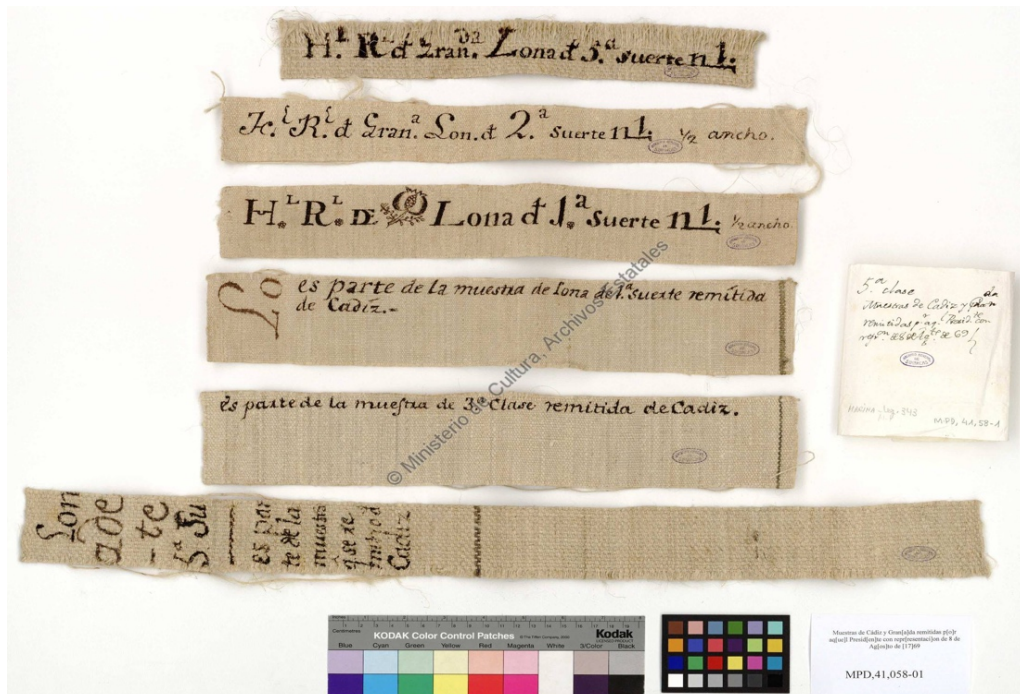 H.L R.L đ Gran.da Lona đ 3.a Suerte n 1.
H.l R.l đ Gran.a Lon. đ 2.a Suerte n 1. 1/2 ancho.
H.L R.L DE Lona đ 1.a Suerte n 1. 1/2 ancho
Lo es parte de la muestra de Lona de 1.a Suerte remitida
de Cadíz.-
és parte de la muestra de 3.a Clase remitida de Cadiz.
Lon
a de
- te
Su
es par
te de la
muestra
q se re
Cadiz
5.a clase
Muestras de Cadiz y Gran.da
remitidas p.r aq.l Presid.te con
rep.on de 8 de Ag.to de 69
MARINA-leg-343
MPD, 41, 58-1
© Ministerio de Cultura, Archivos Estatales
Centimetres
KODAK Color Control Patches
Kodak
Blue Cyan Green Yellow Red Magenta White 3/Color Black
Muestras de Cádiz y Gran[a]da remitidas p[o]r
aq[ue]l Presid[en]te con repr[esentaci]on de 8 de
Ag[os]to de [17]69
MPD,41,058-01